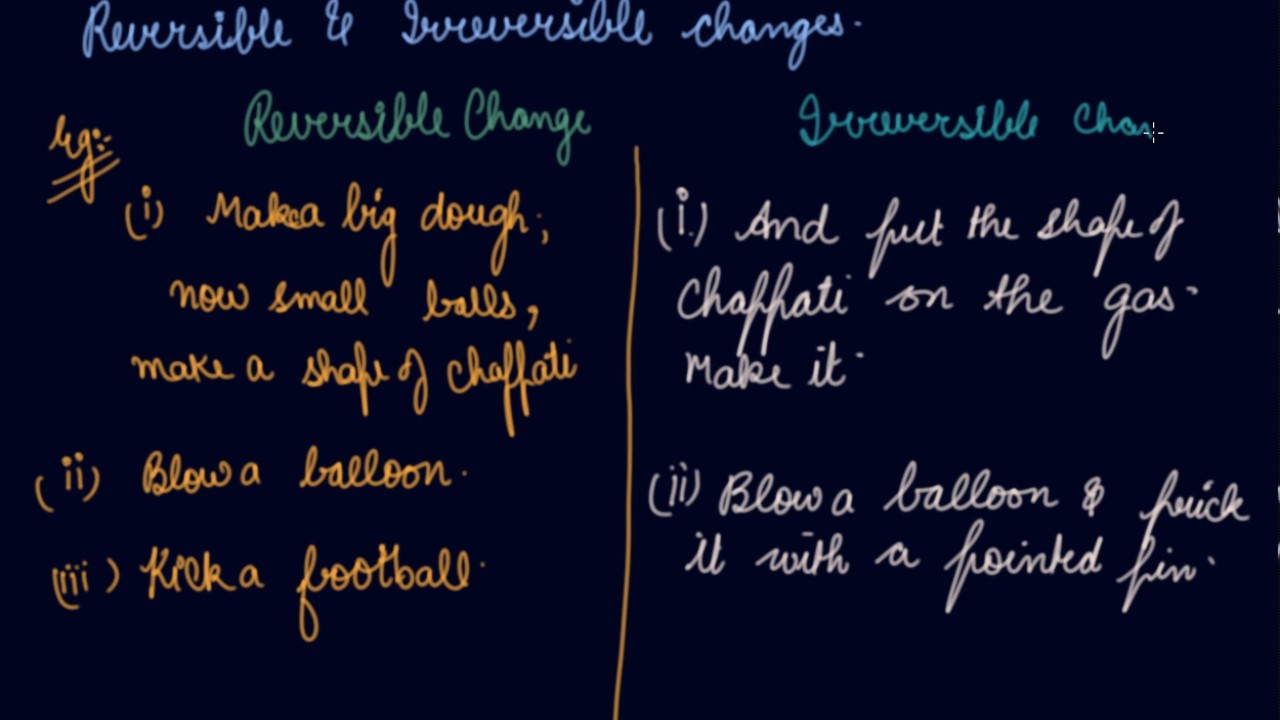 Reversible & Irreversible changes.
Reversible Change
Irreversible Chan
Eg:-
(i) Make a big dough;
now small balls,
make a shape of chappati
(ii) Blow a balloon.
(iii) Kick a football.
(i.) And put the shape of
Chappati on the gas.
Make it.
(ii) Blow a balloon & prick
it with a pointed pin.